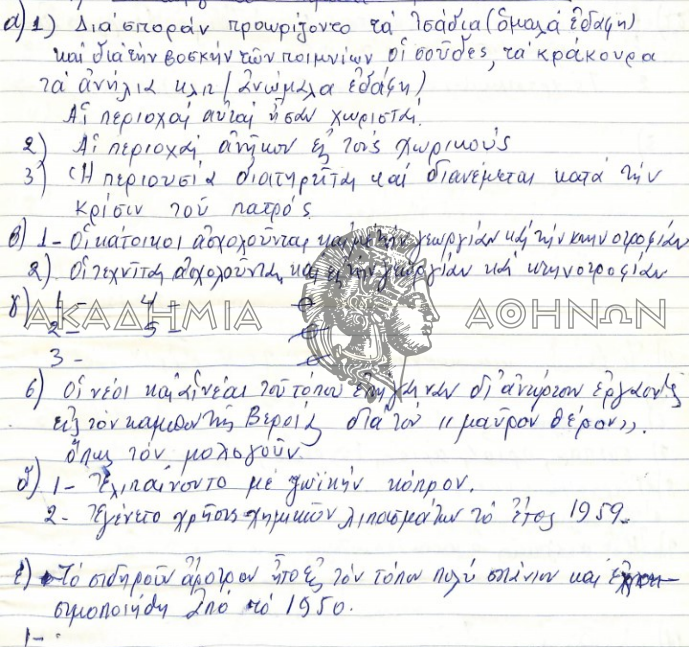 α) 1) Διά σποράν προωρίζοντο τά ἰσάδια (ὁμαλά ἐδάφη)
καί διά τήν βοσκήν τῶν ποιμνίων οἱ σοῦδες, τά κράκουρα
τά ἀνήλια κλπ (ἀνώμαλα ἐδάφη)
Αἱ περιοχαί αὐταί ἦσαν χωρισταί.
2) Αἱ περιοχαί ἀνῆκον εἰς τούς χωρικούς
3) Ἡ περιουσία διατηρεῖται καί διανέμεται κατά τήν
κρίσιν τοῦ πατρός.
β) 1- Οἱ κάτοικοι ἀσχολοῦνται καί μέ τήν γεωργίαν καί τήν κτηνοτροφίαν
2). Οἱ τεχνῖται ἀσχολοῦνται καί εἰς τήν γεωργίαν καί κτηνοτροφίαν
γ) 1 - 4 -
ΑΚΑΔΗΜΙΑ ΑΘΗΝΩΝ
2 - 5 -
3 -
6) Οἱ νέοι καί αἱ νέαι τοῦ τόπου ἐπήγαιναν δι'
εἰς τόν κάμπον τῆς Βεροίας διά τόν "μαῦρον θέρον".
ὅπως τόν μολογοῦν.
δ) 1- Ἐλιπαίνοντο μέ ζωϊκήν κόπρον.
2- Ἐγένετο χρῆσις χημικῶν λιπασμάτων τό ἔτος 1959.
ε) Τό σιδηροῦν ἄροτρον ἦτο εἰς τόν τόπον πολύ σπάνιον καί ἐχρη-
σιμοποιήθη ἀπό τό 1950.
1-